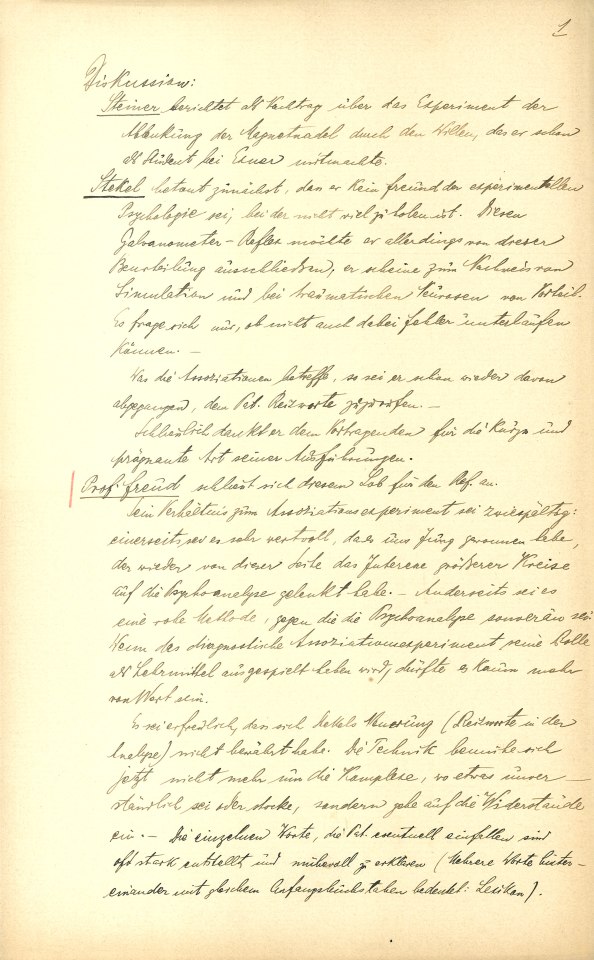 1
Diskussion:
Steiner berichtet als Nachtrag über das Experiment der
Ablenkung der Magnetnadel durch den Willen, das er schon
als Student bei Exner mitmachte.
Stekel betont zunächst, dass er kein Freund der experimentellen
Psychologie sei, bei der nicht viel zu holen ist. Diesen
Galvanometer-Reflex möchte er allerdings von dieser
Beurteilung ausschließen, er scheine zum Nachweis von
Simulation und bei traumatischen Neurosen von Vorteil.
Es frage sich nur, ob nicht auch dabei Fehler unterlaufen
können. —
Was die Assoziationen betreffe, so sei er schon wieder davon
abgegangen, dem Pat. Reizworte zuzurufen. —
Schließlich dankt er dem Vortragenden für die Kürze und
prägnante Art seiner Ausführungen.
Prof. Freud schließt sich diesem Lob für den Ref. an.
Sein Verhältnis zum Assoziationsexperiment sei zwiespältig:
einerseits sei es sehr wertvoll, da es uns Jung gewonnen habe,
der wieder von dieser Seite das Interesse größerer Kreise
auf die Psychoanalyse gelenkt habe. — Anderseits sei es
eine rohe Methode, gegen die die Psychoanalyse souverän sei.
Wenn das diagnostische Assoziationsexperiment seine Rolle
als Lehrmittel ausgespielt haben wird, dürfte es kaum mehr
von Wert sein.
Es sei erfreulich, dass sich Stekels Neuerung (Reizworte in der
Analyse) nicht bewährt habe. Die Technik bemühe sich
jetzt nicht mehr um die Komplexe, wo etwas unver-
ständlich sei oder stocke, sondern gehe auf die Widerstände
ein. — Die einzelnen Worte, die Pat. eventuell einfallen sind
oft stark entstellt und mühevoll zu erklären (Mehrere Worte hinter-
einander mit gleichem Anfangsbuchstaben bedeutet: Lexikon).